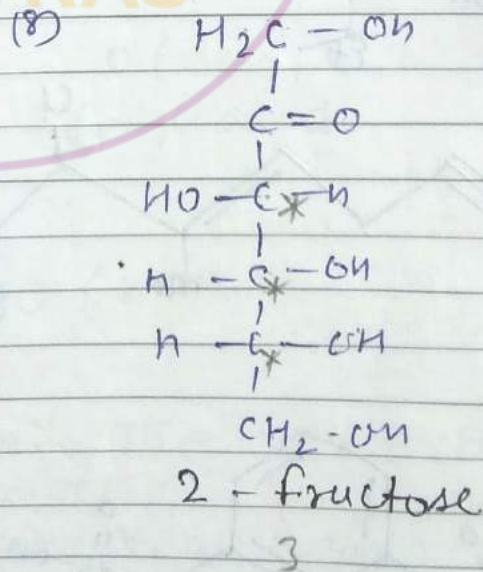 (8) H₂C – OH
C = O
HO – C* – H
H – C* – OH
H – C* – OH
CH₂ - OH
2 - fructose
3